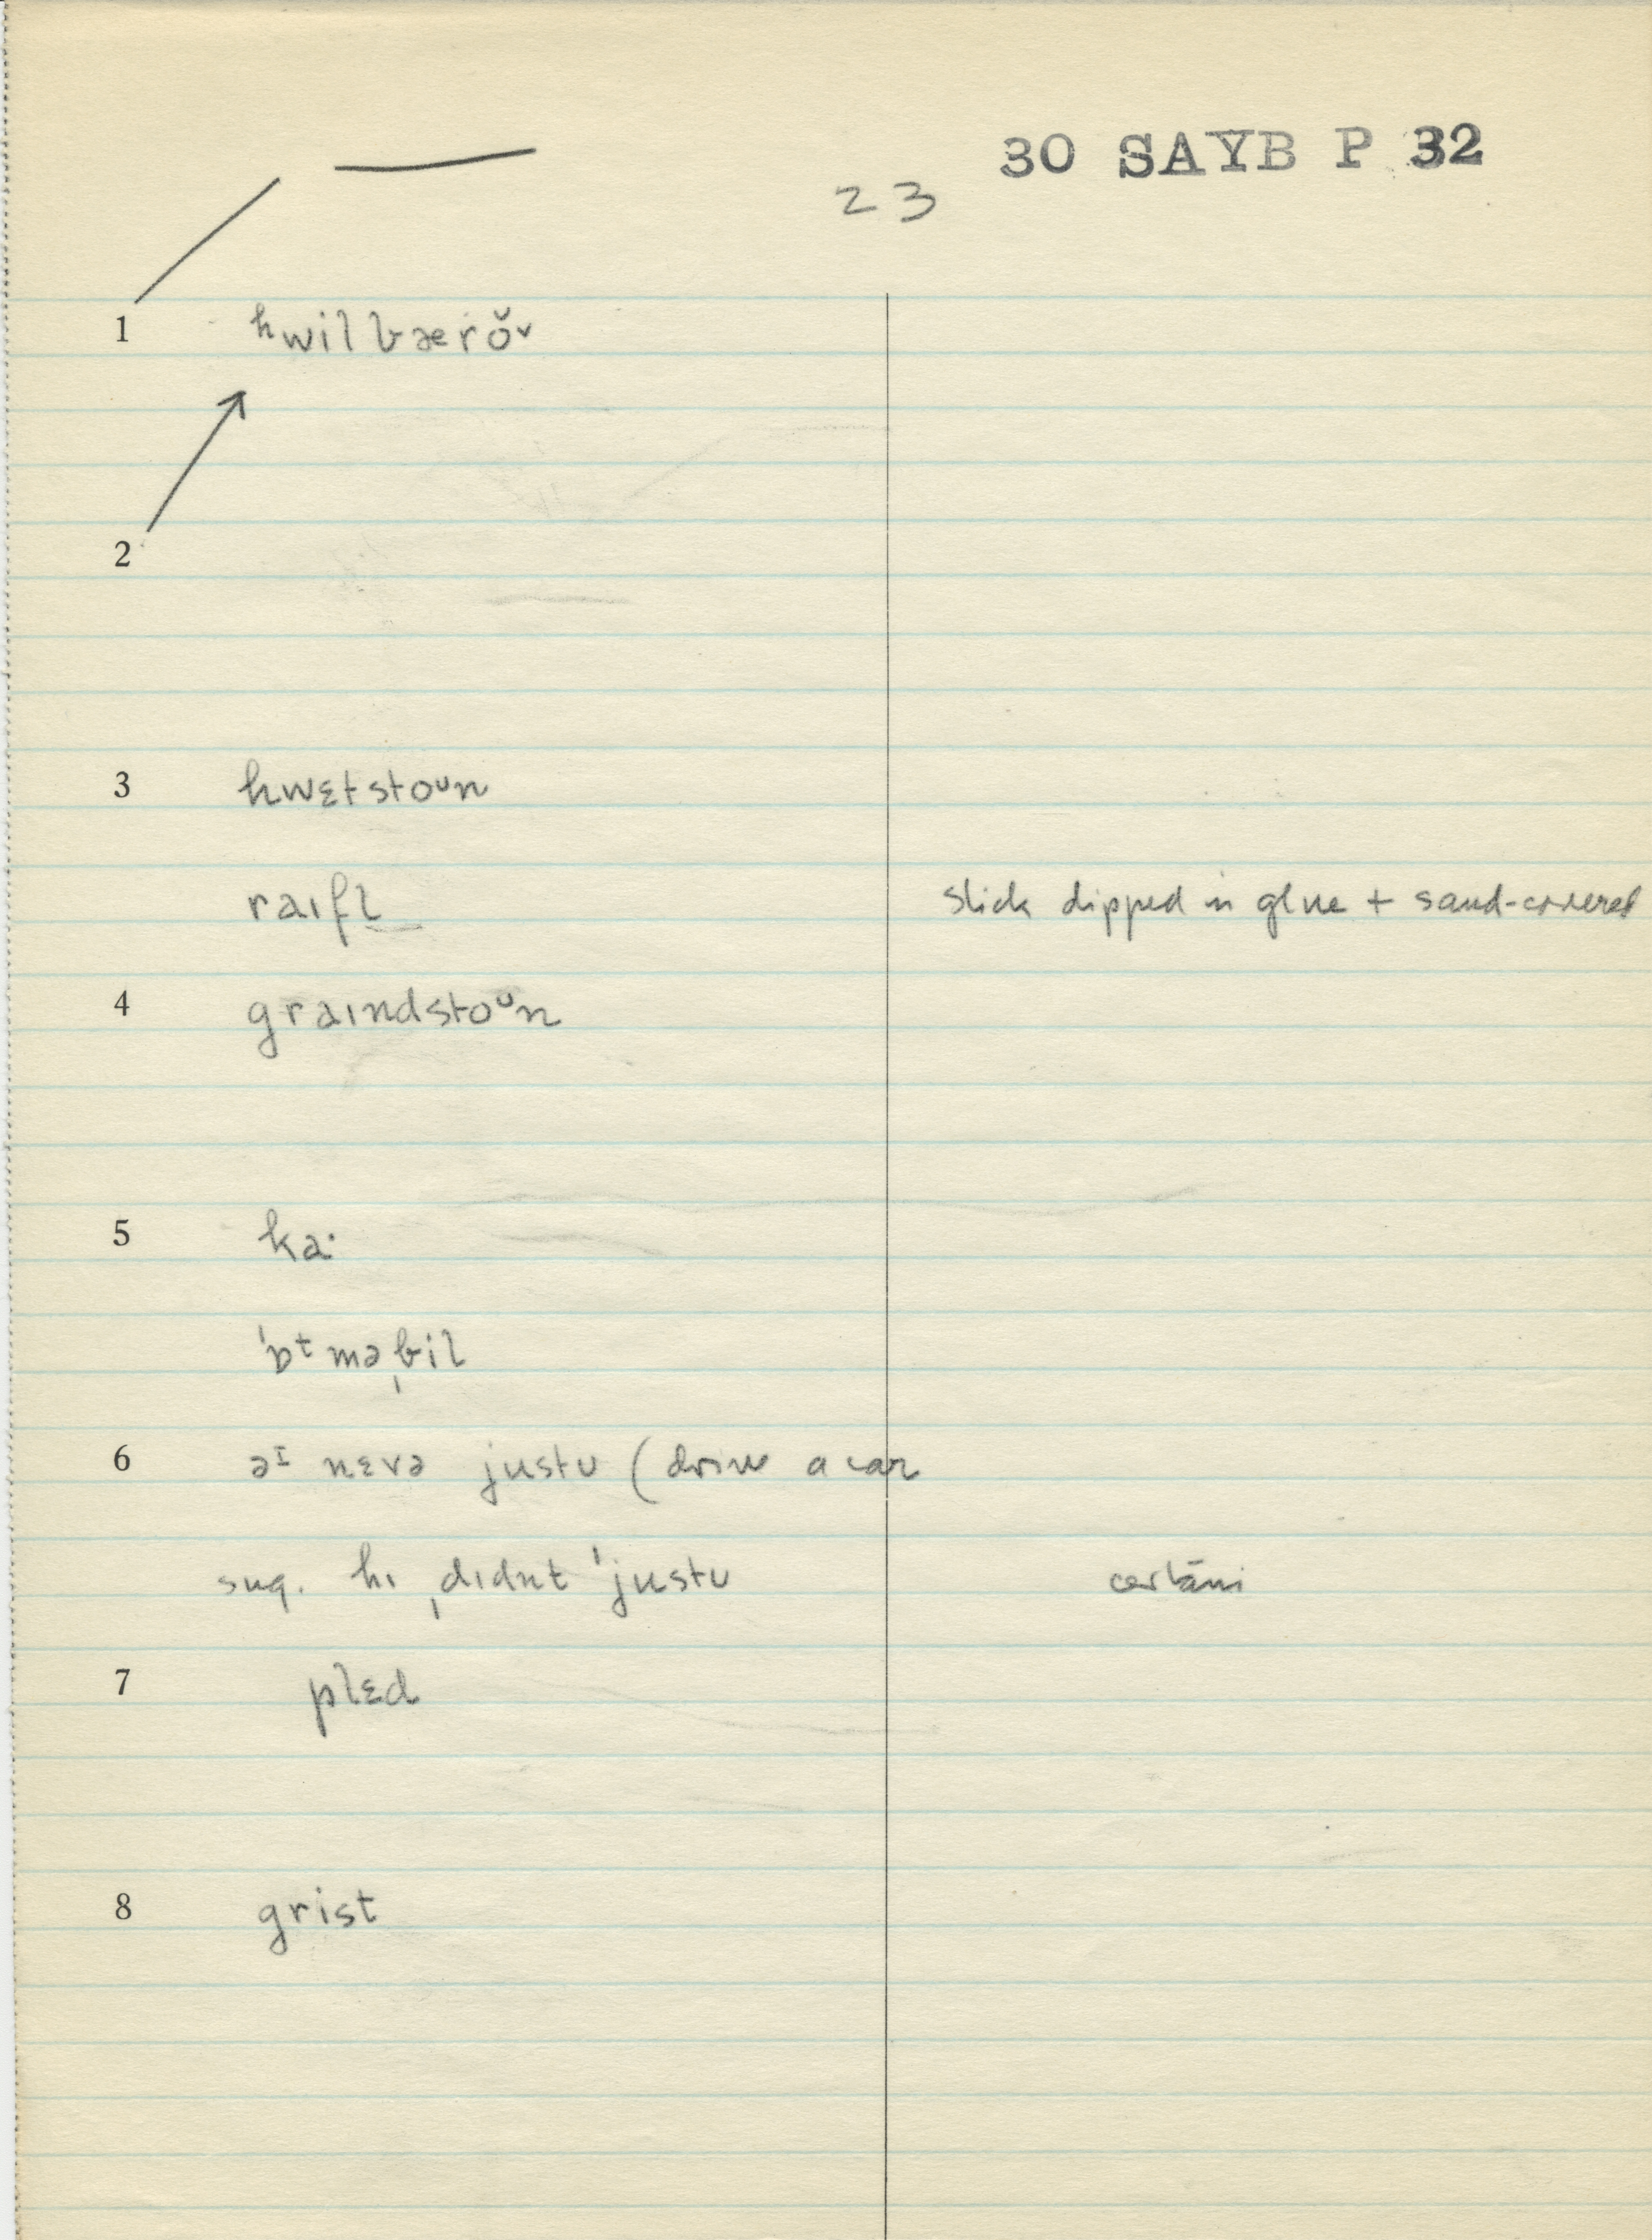 30 SAYB P 32
23
1 ʰwilbærŏᵛ
2
3 hwɛtstoᴜn
raɪfl̩ stick dipped in glue + sand-covered
4 graɪndstoᵁn
5 ka·
ˈɒᵗməˌbil
6 əᴵ nɛvə justᴜ (drive a car
sug. hɪ ˌdɪdnt ˈjustᴜ
7 plɛd
8 grist